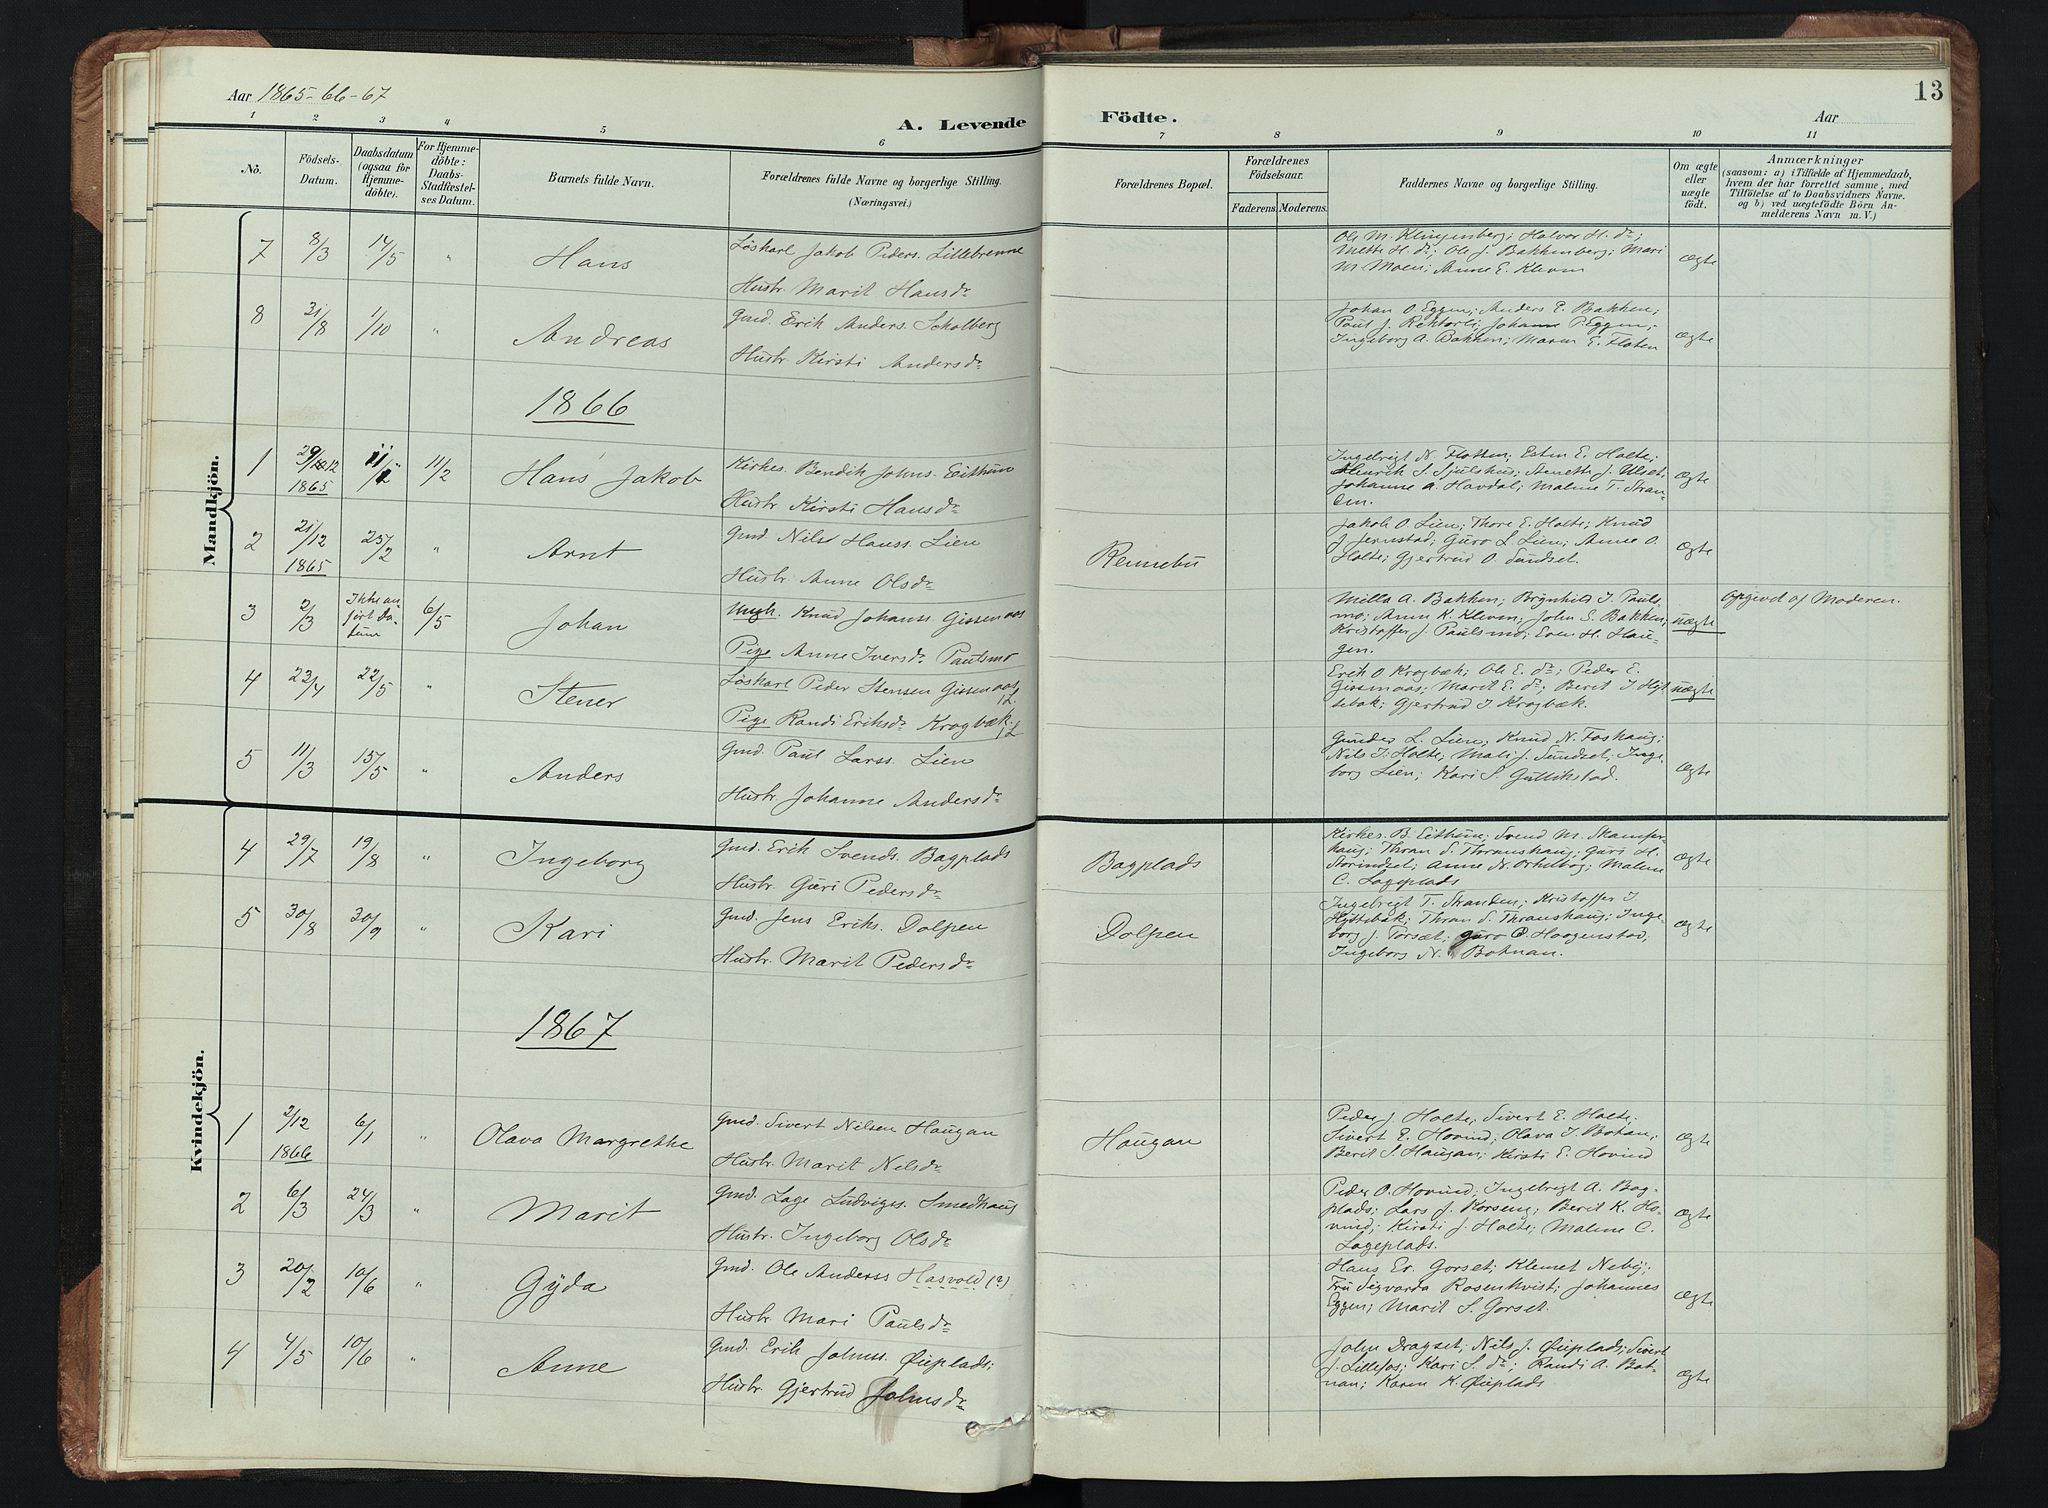 Aar 1865-66-67
A. Levende Födte.
Aar
13
1 2 3 4 5 6 7 8 9 10 11
No.
Födsels-Datum.
Daabsdatum (ogsaa for Hjemme-döbte).
For Hjemme-döbte: Daabs-Stadfæstel-ses Datum.
Barnets fulde Navn.
Forældrenes fulde Navne og borgerlige Stilling.
(Næringsvei.)
Forældrenes Bopæl.
Forældrenes Födselsaar.
Faderens. Moderens.
Faddernes Navne og borgerlige Stilling.
Om ægte eller uægte födt.
Anmærkninger
(saasom: a) i Tilfælde af Hjemmedaab, hvem der har forrettet samme, med Tilföielse af to Daabsvidners Navne. og b) ved uægtefödte Börn An-melderens Navn m. V.)
Mandkjön.
7 8/3 14/5 " Hans Løskarl Jakob Peders. Lillebrenne
Hustr. Marit Hansdr
Ole M. Klingenberg; Halvor H. dr;
Mette H. dr; Ole J. Bakkenberg; Mari
M. Moen; Anne E. Kleven
ægte
8 31/8 1/10 " Andreas Gmd. Erik Anders. Scholberg
Hustr. Kirsti Andersdr
Johan O. Eggen; Anders E. Bakken;
Paul J. Rektorli; Johanne P. Eggen;
Ingeborg A. Bakken; Maren E. Floten
ægte
1866
1 29/12 1865 11/2 Hans Jakob Kirkes. Bendik Johns. Eithun
Hustr. Kirsti Hansdr
Ingebrigt N. Flotten; Esten E. Holte;
Henrik S. Sjulshus; Anette J. Ulset
Johanne A. Havdal; Malene T. Stran-
den.
ægte
2 21/12 1865 25/2 " Arnt Gmd. Nils Hanss. Lien
Hustr. Anne Olsdr
Rennebu
Jakob O. Lien; Thore E. Holte; Knud
J. Jernstad; Guro L. Lien; Anne O.
Holte; Gjertrud O. Sundset.
ægte
3 2/3 Ikke an-ført Da-tum 6/5 Johan Ungk. Knud Johanss. Gissenaas
Pige Anne Iversdr Paulsmo
Milla A. Bakken; Brynhild I. Pauls-
mo; Anne K. Kleven; John E. Bakken;
Kristoffer J. Paulsmo; Even H. Hau-
gen.
uægte
Opgivet af Moderen.
4 23/4 22/5 " Stener Løskarl Peder Stensen Gissenaas 1/2
Pige Randi Eriksdr Krogbæk 1/2
Erik O. Krogbæk; Ole E. dr; Peder E.
Gissenaas; Marit E. dr; Berit I Hyt
tebak; Gjertrud I Krogbæk.
uægte
5 11/3 15/5 " Anders Gmd. Paul Larss. Lien
Hustr. Johanne Andersdr
Gunder L. Lien; Knud N. Foshaug;
Nils I. Holte; Mali J. Sundset; Inge-
borg Lien; Kari S. Gullikstad.
ægte
Kvindekjön.
4 29/7 19/8 " Ingeborg Gmd. Erik Svends. Bagplads
Hustr. Guri Pedersdr
Bagplads
Kirkes. B. Eithun; Svend M. Skamfer-
haug; Thran S. Thranshaug; Guri H.
Storindset; Anne N. Orkelbog; Malene
C. Lageplads
ægte
5 30/8 30/9 " Kari Gmd. Jens Eriks. Dolpen
Hustr. Marit Pedersdr
Dolpen
Ingebrigt T. Stranden; Kristoffer I
Hyttebak; Thran S. Thranshaug; Inge-
borg J. Torsæt; Guro O. Haagenstad;
Ingeborg N. Botnan.
ægte
1867
1 2/12 1866 6/1 " Olava Margrethe Gmd. Sivert Nilsen Haugan
Hustr. Marit Nilsdr
Haugan
Peder J. Holte; Sivert E. Holte;
Sivert E. Hovind; Olava I. Botnan;
Berit S. Haugan; Kirsti E. Hovind
ægte
2 6/3 24/3 " Marit Gmd. Lage Ludvigs. Smedhaug
Hustr. Ingeborg Olsdr
Peder O. Hovind; Ingebrigt A. Bag-
plads; Lars J. Korseng; Berit K. Ho-
vind; Kirsti J. Holte; Malene C.
Lageplads.
ægte
3 20/2 10/6 " Gyda Gmd. Ole Anderss Hasvold (?)
Hustr. Mari Paulsdr
Hans Er. Gorset; Klemet Neby;
Fru Sigvarda Rosenkvist; Johannes
Eggen; Marit S. Gorset.
ægte
4 4/5 10/6 " Anne Gmd. Erik Johnss. Øieplads;
Hustr. Gjertrud Johnsdr
John Dragset; Nils J. Øieplads; Sivert
J. Lillefos; Kari S. dr; Randi A. Bot-
nan; Karen K. Øieplads
ægte